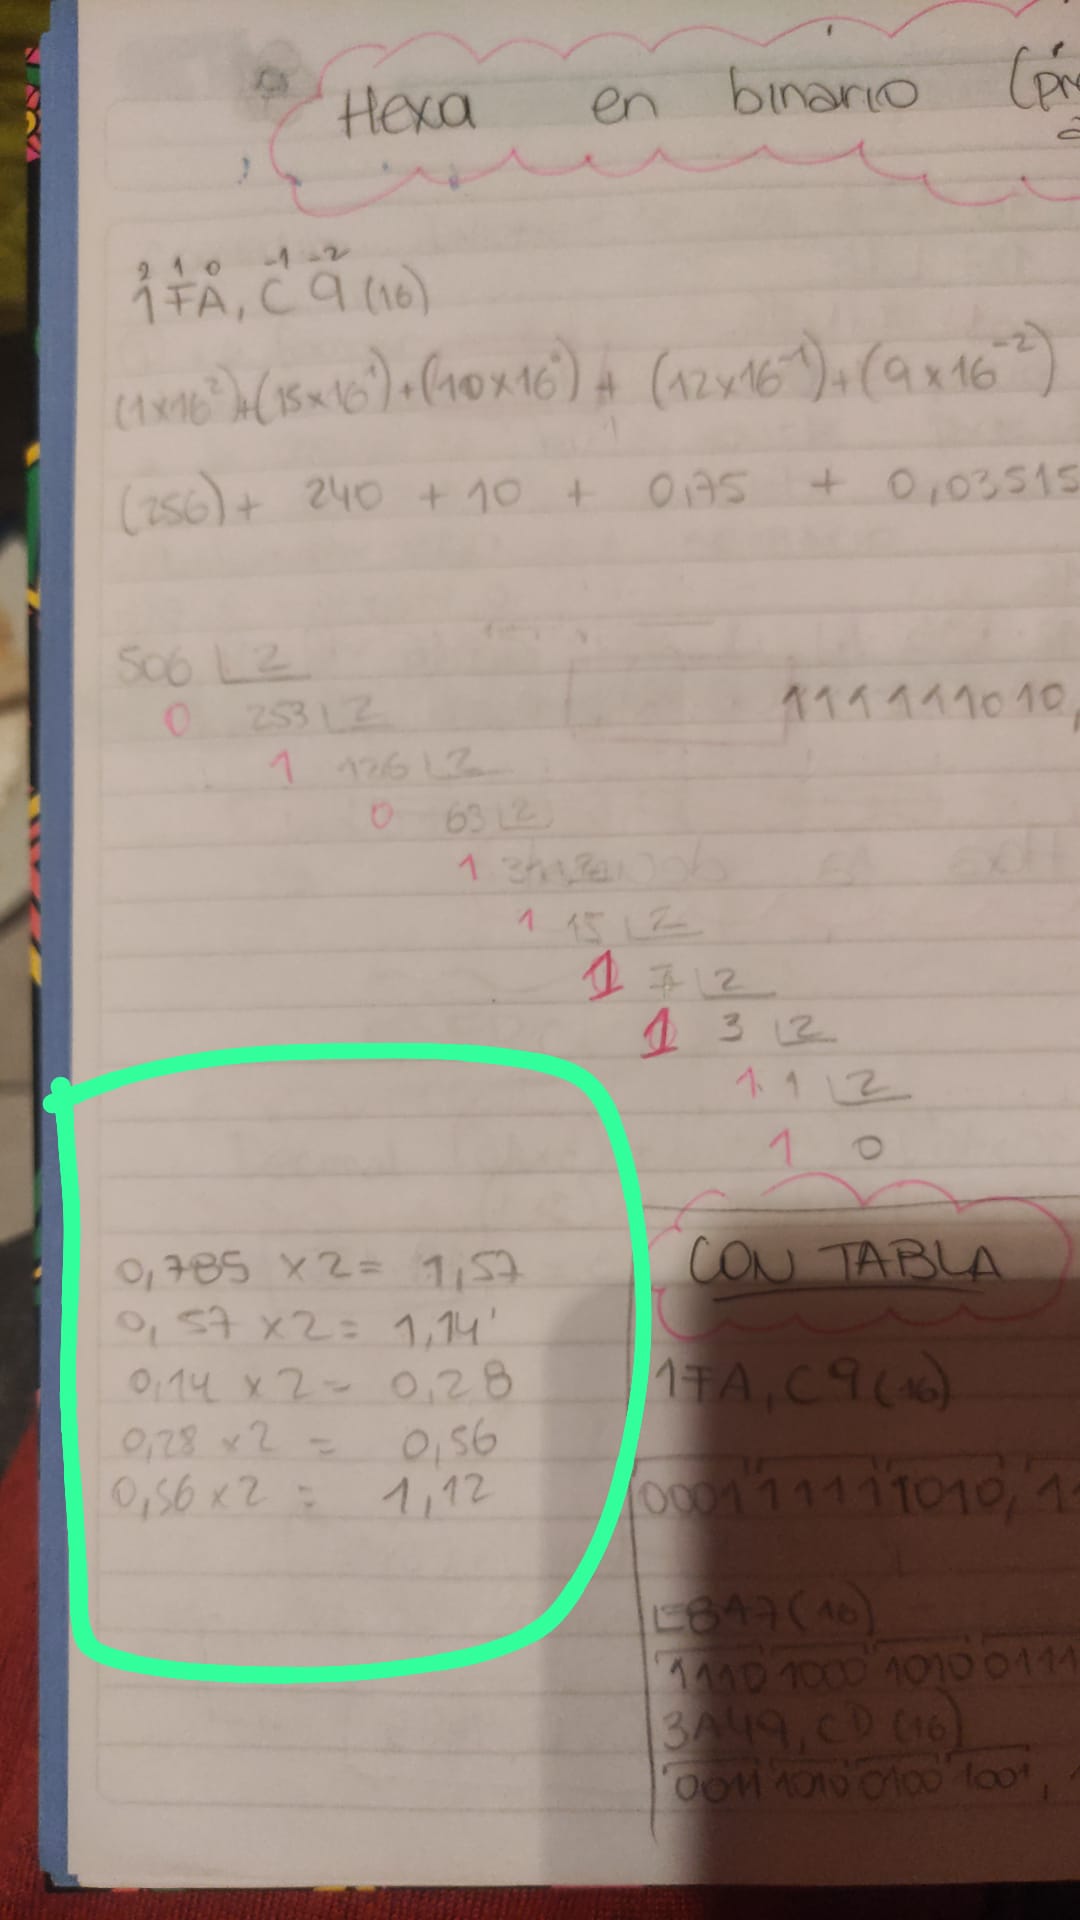 Hexa en binario
2 1 0 -1 -2
1FA, C9(16)
(1x16²)+(15x16¹)+(10x16⁰)+(12x16⁻¹)+(9x16⁻²)
(256)+ 240 + 10 + 0,75 + 0,03515
506 2
0 253 2
111111010,
1 126 2
0 63 2
1
1 15 2
1 7 2
1 3 2
1 1 2
1 0
0,785 x 2 = 1,57
0,57 x 2 = 1,14
0,14 x 2 = 0,28
0,28 x 2 = 0,56
0,56 x 2 = 1,12
CON TABLA
1FA, C9(16)
000111111010, 1
E8A7(16)
1110 1000 1010 0111
3A49, CD(16)
0011 1010 0100 1001,